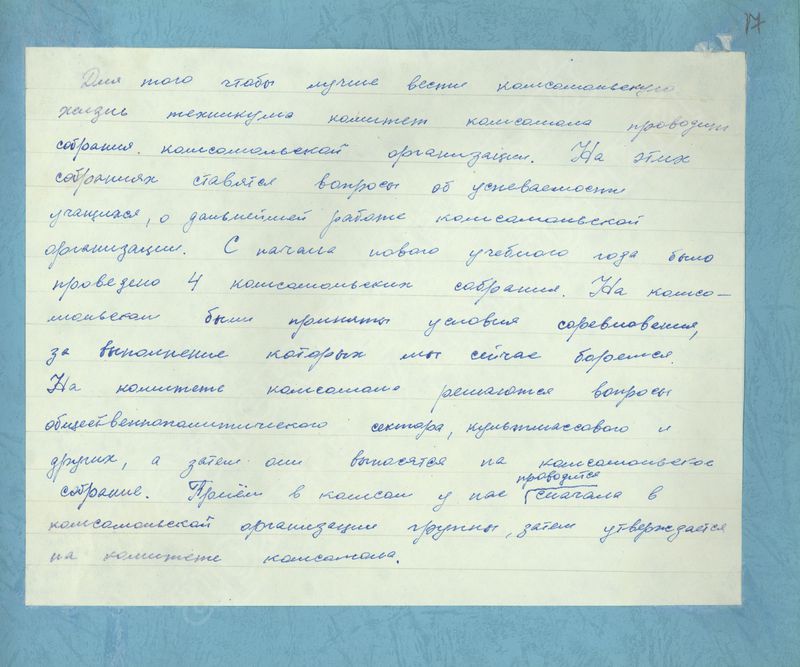 17
Для того чтобы лучше вести комсомольскую
жизнь техникума комитет комсомола проводит
собрания комсомольской организации. На этих
собраниях ставятся вопросы об успеваемости
учащихся, о дальнейшей работе комсомольской
организации. С начала нового учебного года было
проведено 4 комсомольских собрания. На комсо-
мольском были приняты условия соревнования,
за выполнение которых мы сейчас боремся.
На комитете комсомола решаются вопросы
общественнополитического сектора, культмассового и
других, а затем они выносятся на комсомольское
собрание. Приём в комсомол у нас проводится сначала в
комсомольской организации группы, затем утверждается
на комитете комсомола.